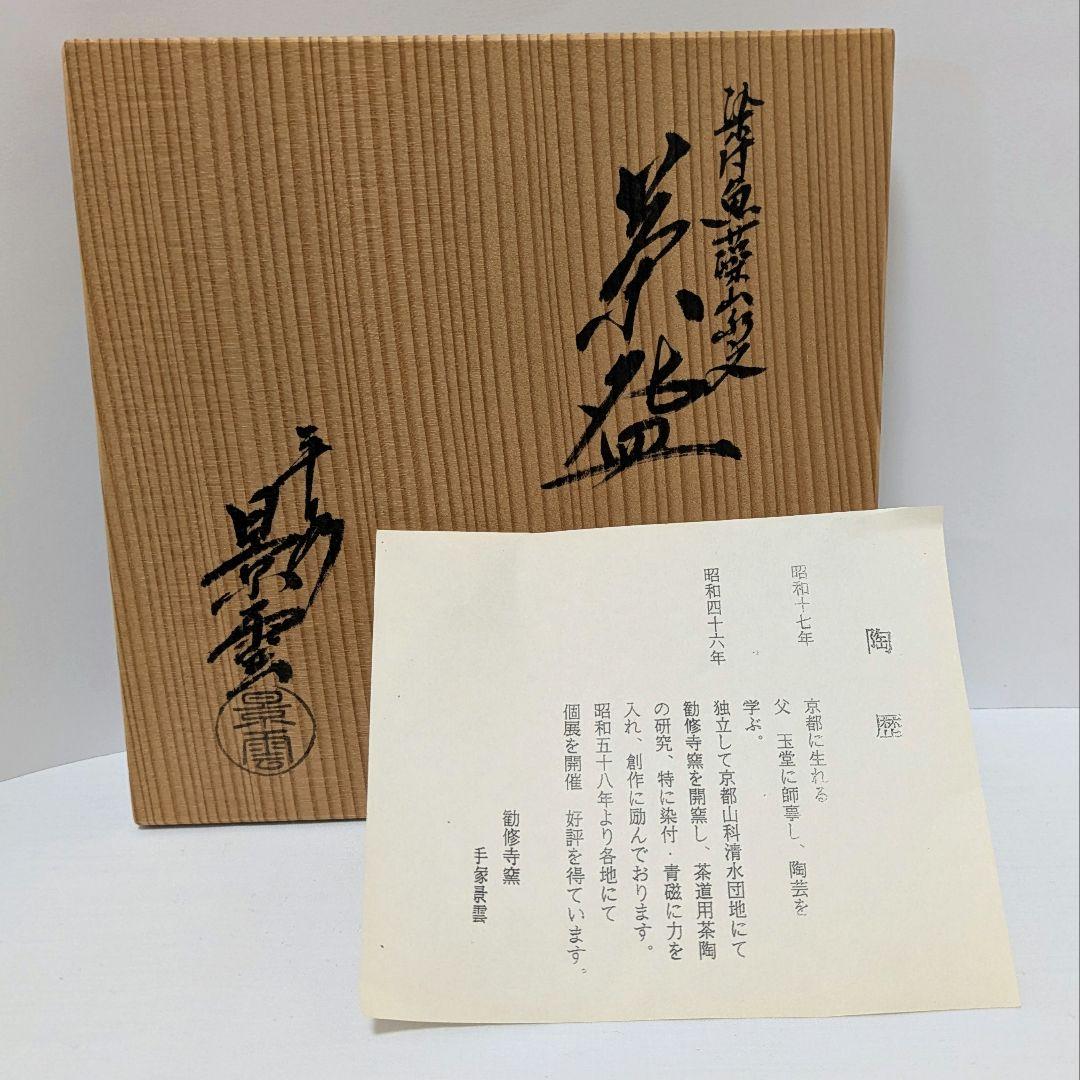 染付魚藻山水文
茶盌
平安
景雲
景雲
陶歴
昭和十七年 京都に生れる
父 玉堂に師事し、陶芸を
学ぶ。
昭和四十六年 独立して京都山科清水団地にて
勧修寺窯を開窯し、茶道用茶陶
の研究、特に染付・青磁に力を
入れ、創作に励んでおります。
昭和五十八年より各地にて
個展を開催 好評を得ています。
勧修寺窯
手塚景雲